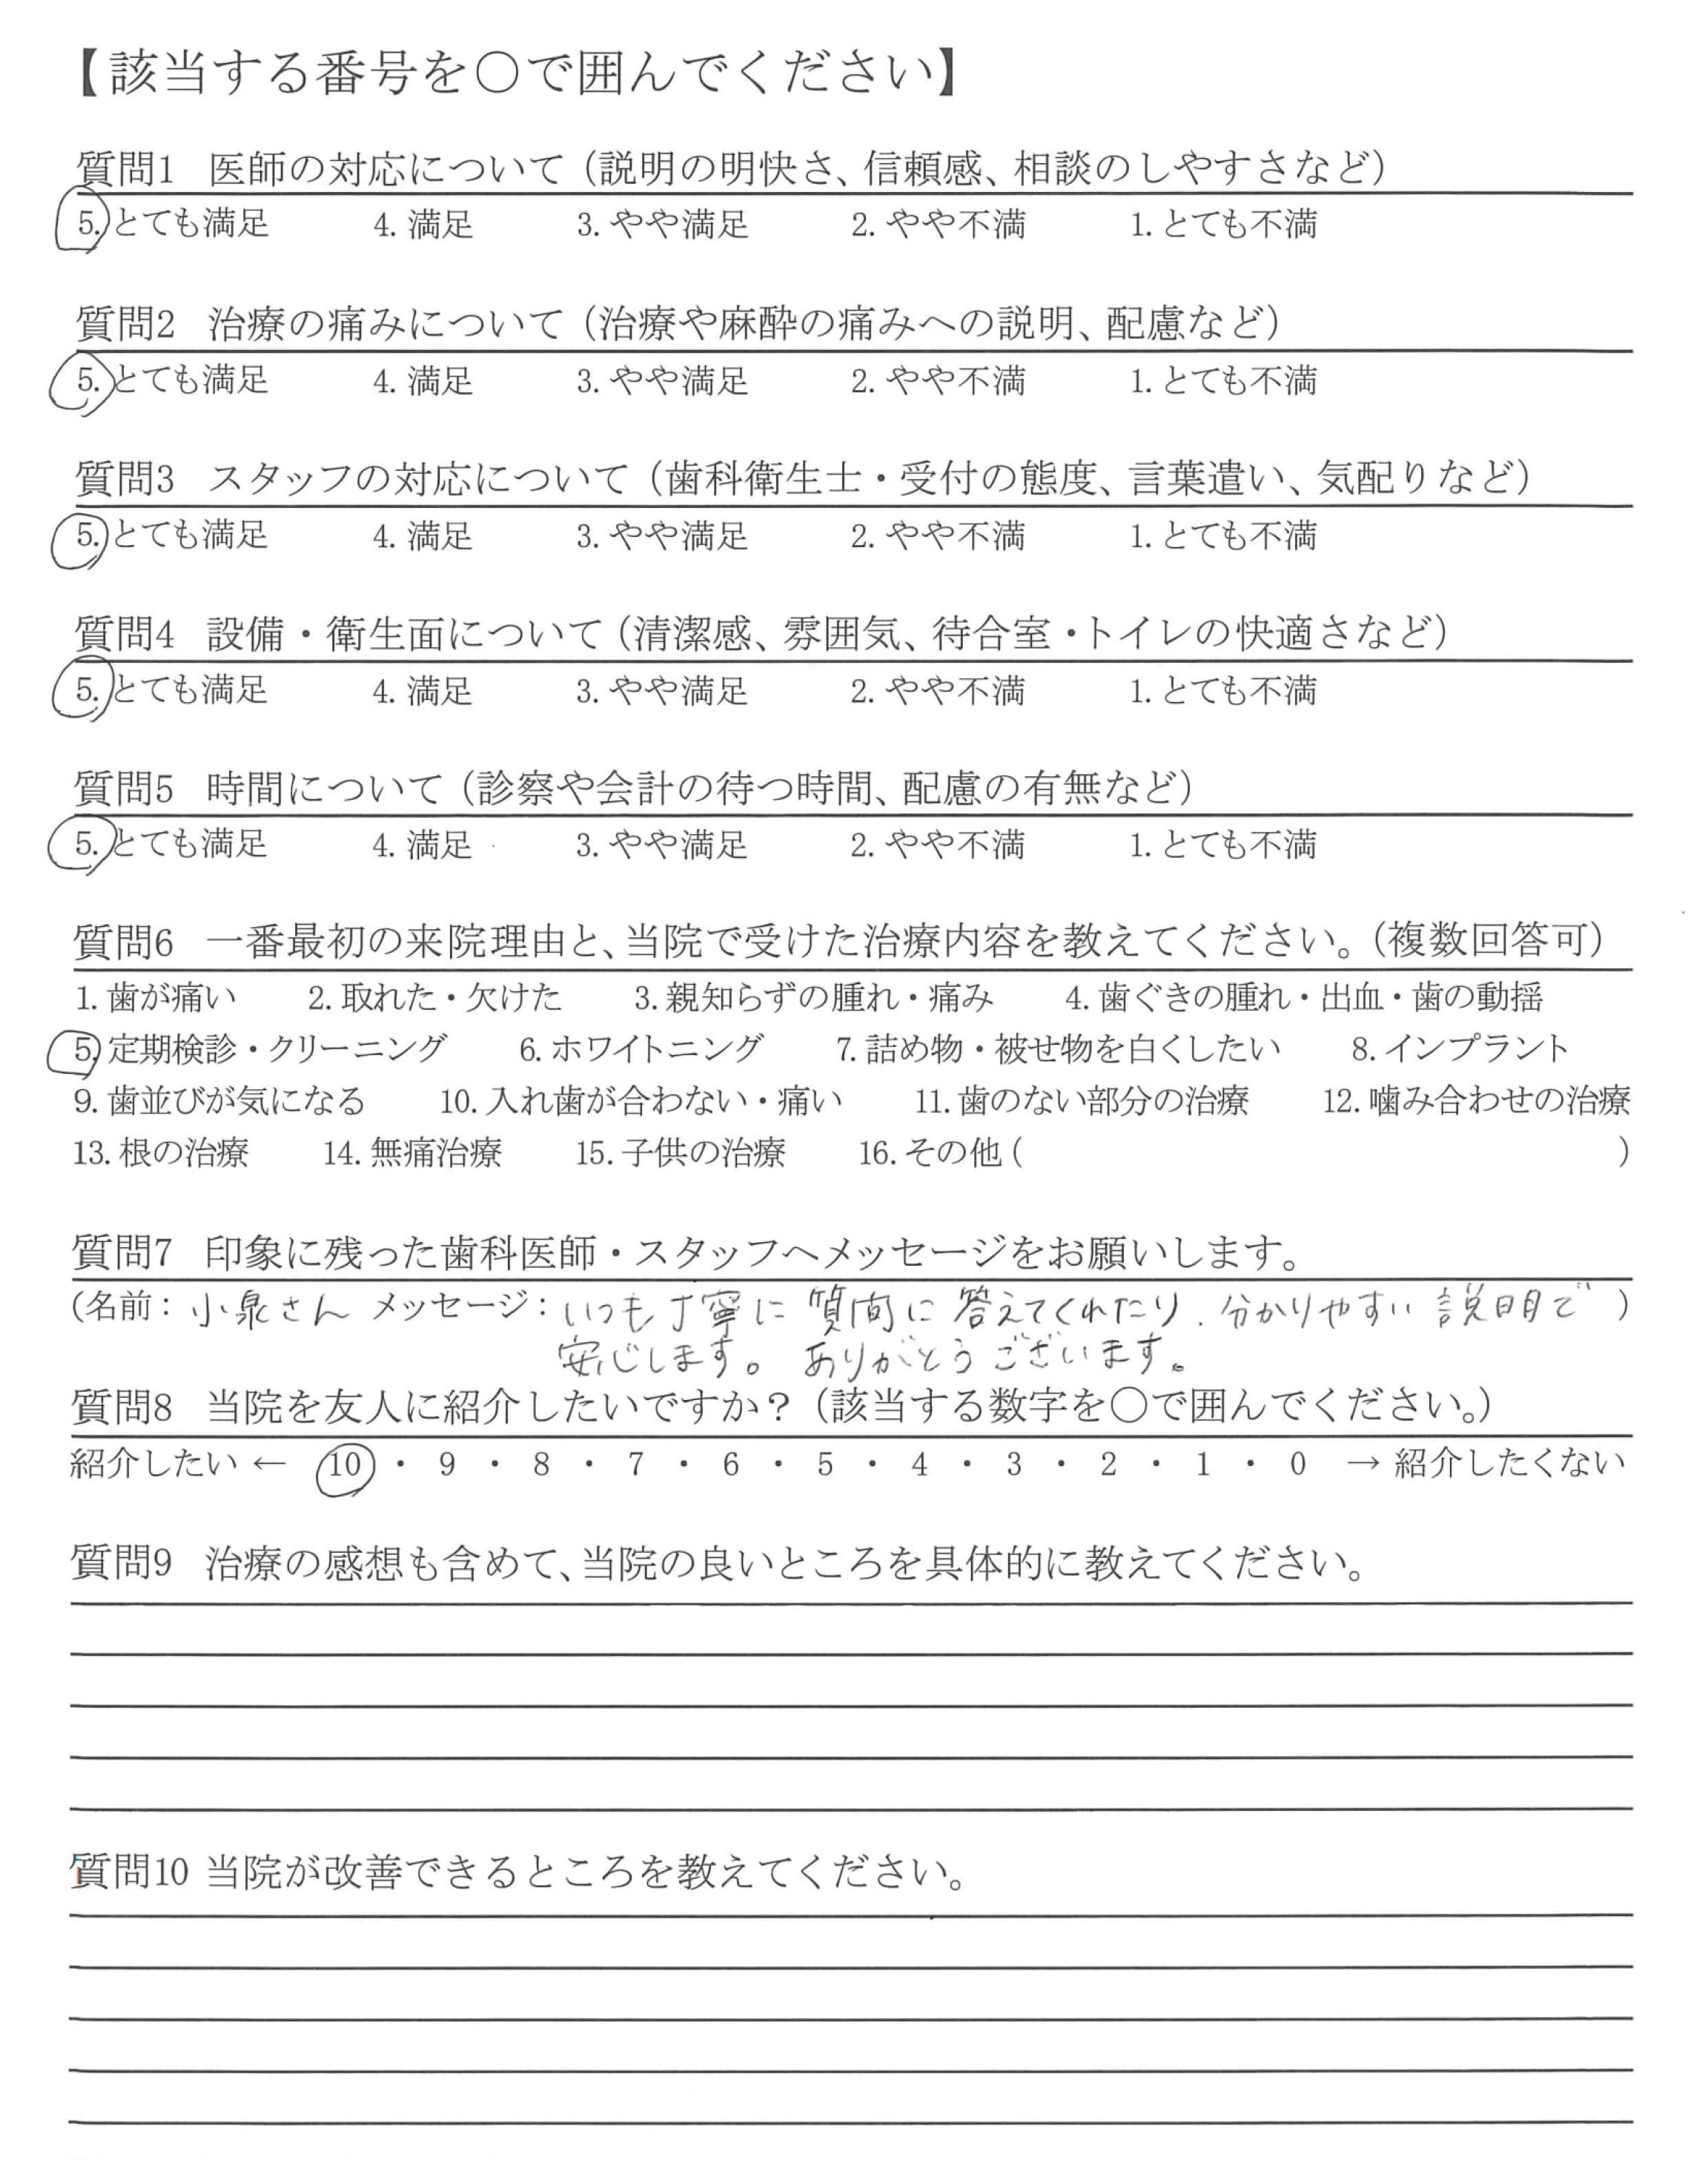 【該当する番号を〇で囲んでください】
質問1 医師の対応について（説明の明快さ、信頼感、相談のしやすさなど）
5. とても満足 4. 満足 3. やや満足 2. やや不満 1. とても不満
質問2 治療の痛みについて（治療や麻酔の痛みへの説明、配慮など）
5. とても満足 4. 満足 3. やや満足 2. やや不満 1. とても不満
質問3 スタッフの対応について（歯科衛生士・受付の態度、言葉遣い、気配りなど）
5. とても満足 4. 満足 3. やや満足 2. やや不満 1. とても不満
質問4 設備・衛生面について（清潔感、雰囲気、待合室・トイレの快適さなど）
5. とても満足 4. 満足 3. やや満足 2. やや不満 1. とても不満
質問5 時間について（診察や会計の待つ時間、配慮の有無など）
5. とても満足 4. 満足 3. やや満足 2. やや不満 1. とても不満
質問6 一番最初の来院理由と、当院で受けた治療内容を教えてください。（複数回答可）
1. 歯が痛い 2. 取れた・欠けた 3. 親知らずの腫れ・痛み 4. 歯ぐきの腫れ・出血・歯の動揺
5. 定期検診・クリーニング 6. ホワイトニング 7. 詰め物・被せ物を白くしたい 8. インプラント
9. 歯並びが気になる 10. 入れ歯が合わない・痛い 11. 歯のない部分の治療 12. 噛み合わせの治療
13. 根の治療 14. 無痛治療 15. 子供の治療 16. その他 ( )
質問7 印象に残った歯科医師・スタッフへメッセージをお願いします。
(名前：小泉さん メッセージ：いつも丁寧に質問に答えてくれたり、分かりやすい説明で )
安心します。ありがとうございます。
質問8 当院を友人に紹介したいですか？（該当する数字を〇で囲んでください。）
紹介したい ← 10 ・ 9 ・ 8 ・ 7 ・ 6 ・ 5 ・ 4 ・ 3 ・ 2 ・ 1 ・ 0 → 紹介したくない
質問9 治療の感想も含めて、当院の良いところを具体的に教えてください。
質問10 当院が改善できるところを教えてください。